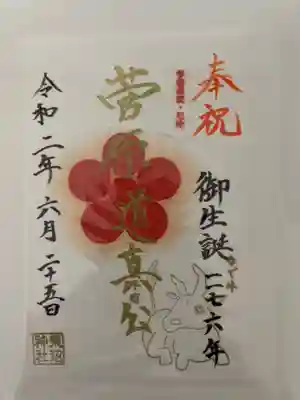 奉祝
御生誕一一七六年
菅原道真公
令和二年 六月 二十五日